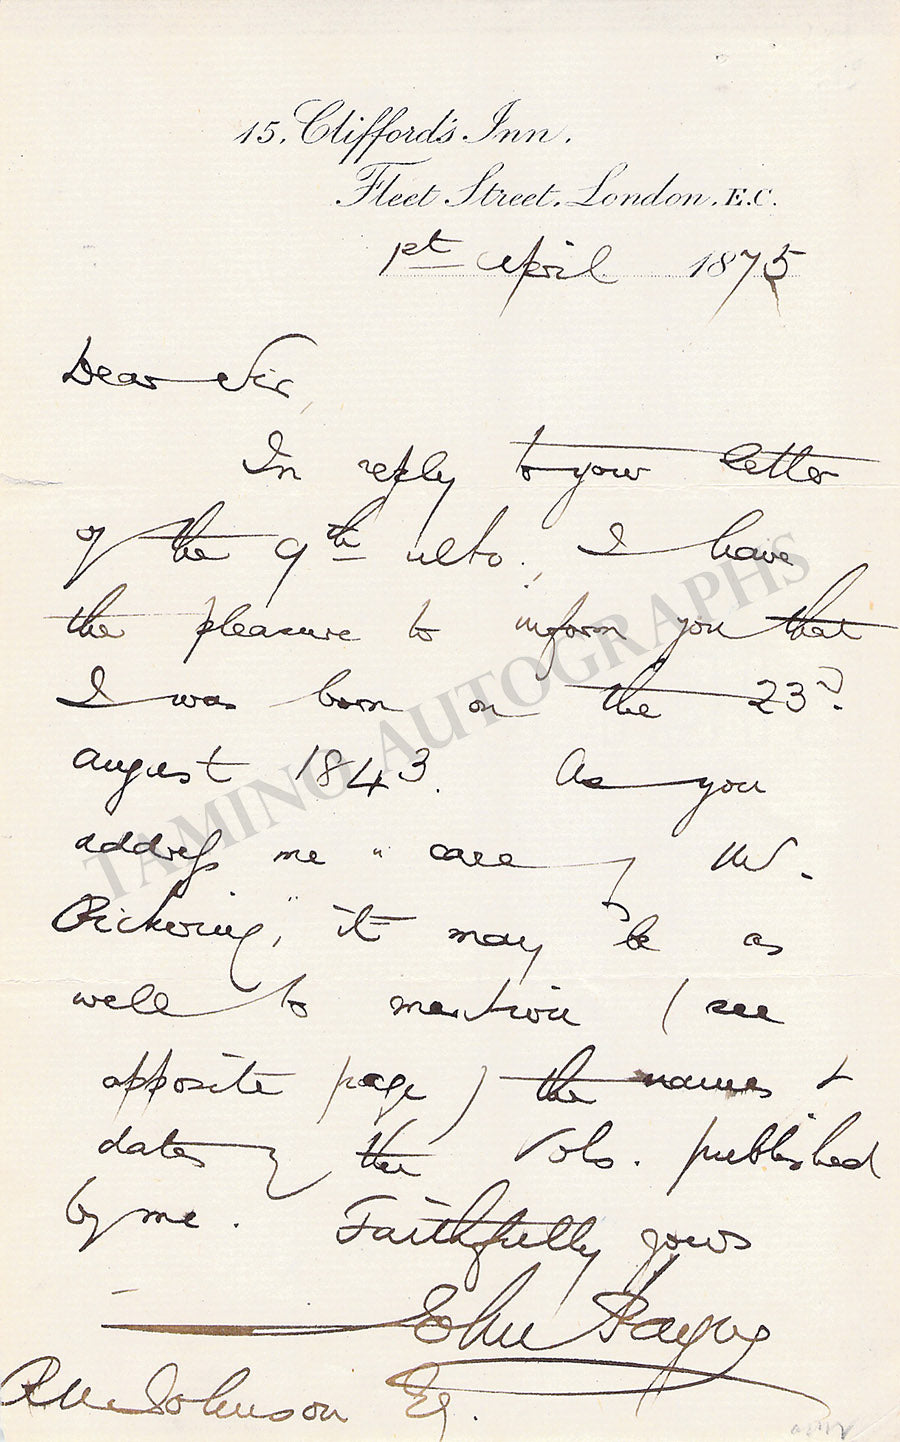 15, Clifford's Inn,
Fleet Street, London, E.C.
1st April 1875
Dear Sir,
In reply to your letter
of the 9th ulto., I have
the pleasure to inform you that
I was born on the 23d.
August 1843. As you
address me "care of W.
Pickering", it may be as
well to mention (see
opposite page) the names &
dates of the vols. published
by me. Faithfully yours
John Payne
Johnson Esq.
TAMINO AUTOGRAPHS